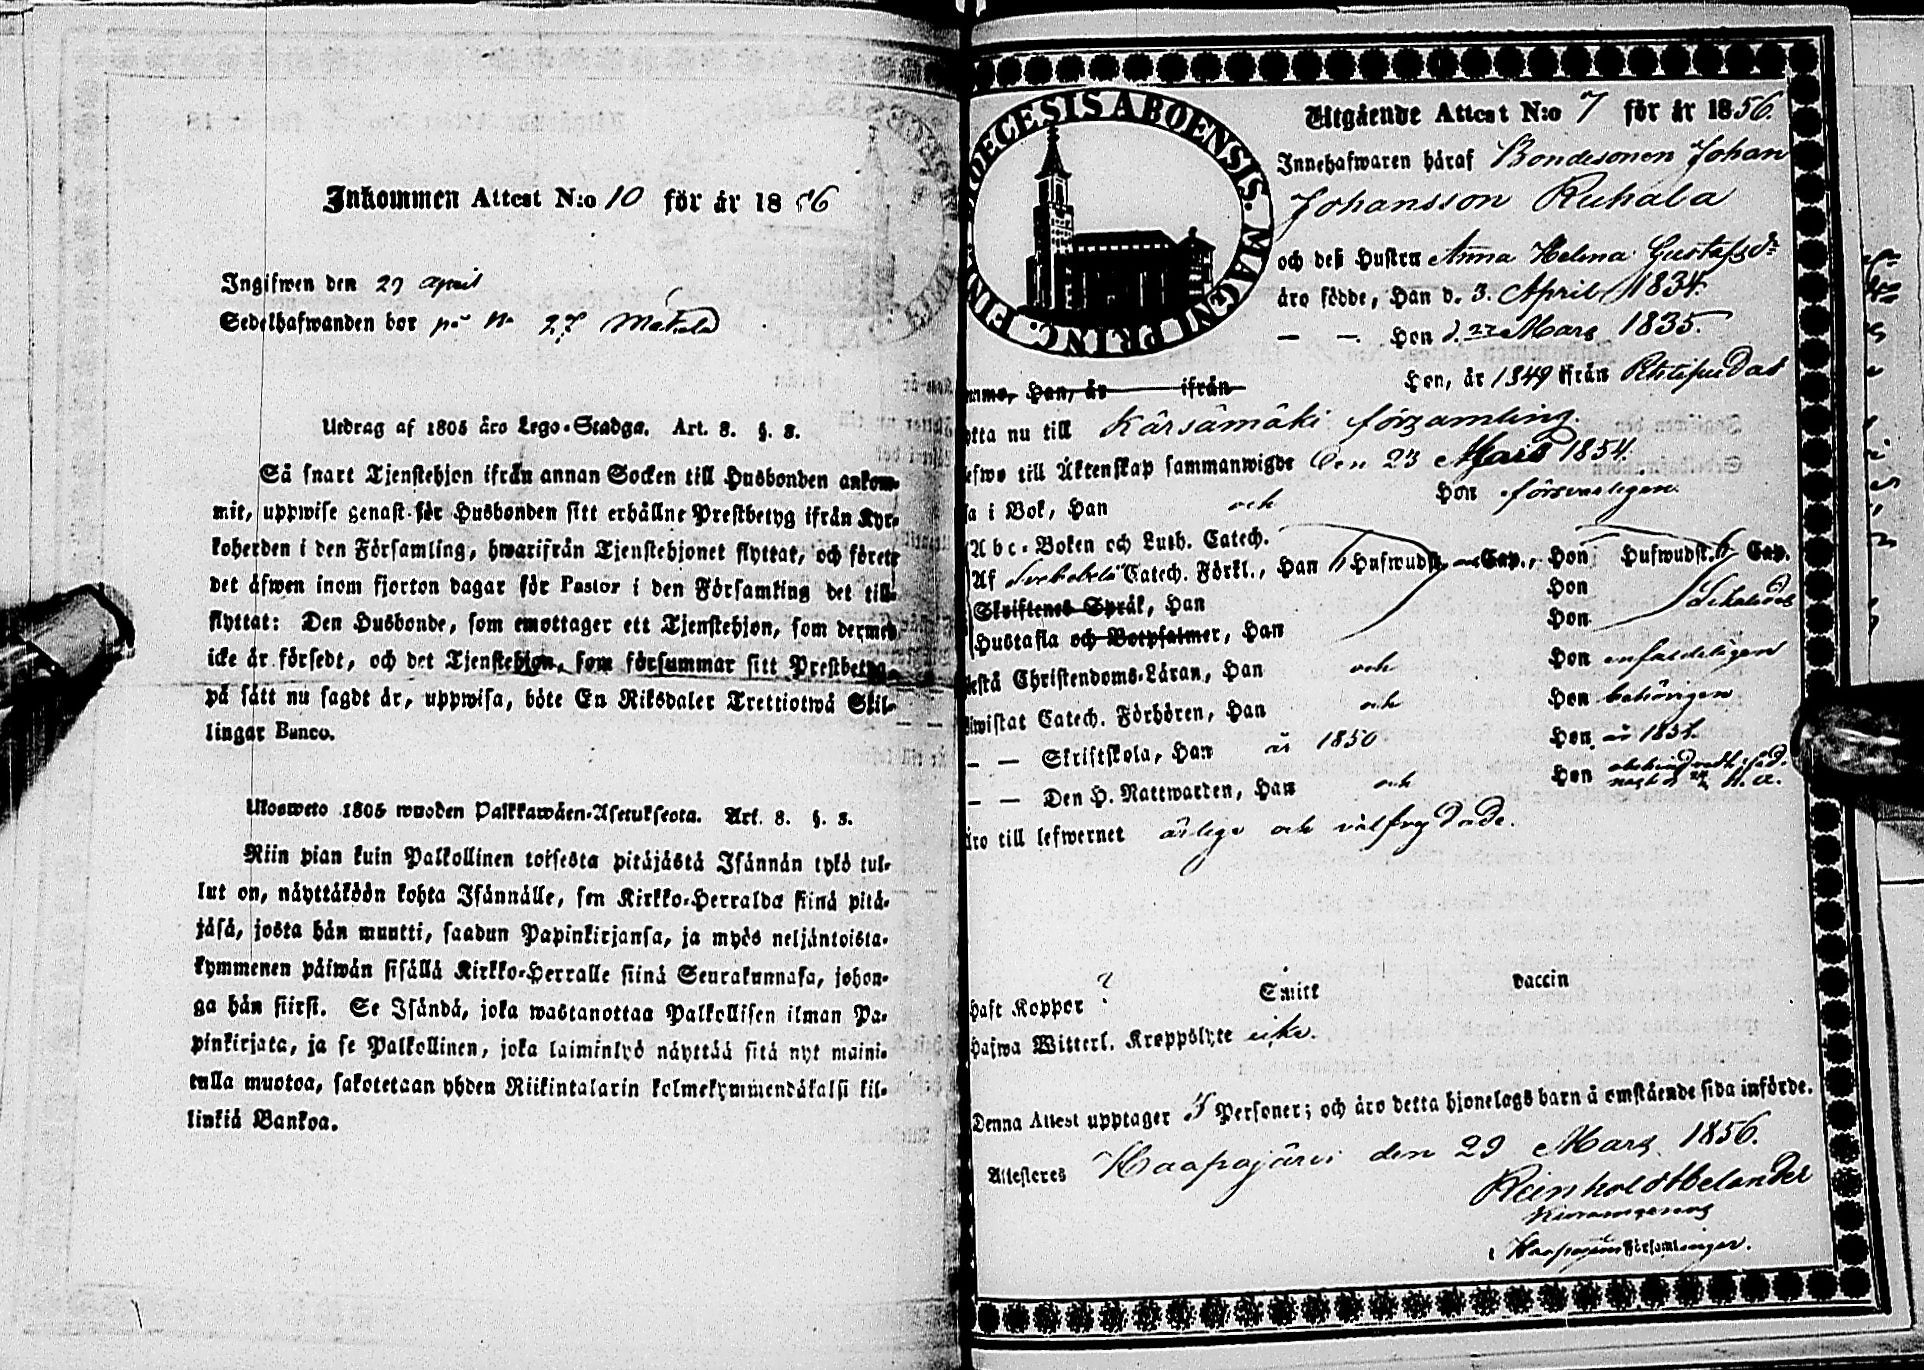 Inkommen Attest N:o 10 för år 1856
Ingifwen den 29 april
Sedelhafwanden bor på No 27 Mäkelä
Utdrag af 1805 års Lego-Stadga. Art. 8. §. 8.
Så snart Tjenstehjon ifrån annan Socken till Husbonden ankom-
mit, uppwise genast för Husbonden sitt erhållne Prestbetyg ifrån Kyr-
koherden i den Församling, hwarifrån Tjenstehjonet flyttat, och förete
det äfwen inom fjorton dagar för Pastor i den Församling det till-
flyttat: Den Husbonde, som emottager ett Tjenstehjon, som dermed
icke är försedt, och det Tjenstehjon, som försummar sitt Prestbetyg,
på sätt nu sagdt är, uppwisa, böte En Riksdaler Trettiotwå Skil-
lingar Banco.
Uloswето 1805 wuoden Palkkawäen-Asetuksesta. Art. 8. §. 8.
Niin pian kuin Palkollinen toisesta pitäjästä Isännän tykö tul-
lut on, näyttäköön kohta Isännälle, sen Kirkko-Herralda siinä pitä-
jäsä, josta hän muutti, saadun Papinkirjansa, ja myös neljäntoista-
kymmenen päiwän sisällä Kirkko-Herralle siinä Seurakunnasa, johon-
ga hän siirsi. Se Isändä, joka wastanottaa Palkollisen ilman Pa-
pinkirjata, ja se Palkollinen, joka laiminlyö näyttää sitä nyt maini-
tulla muotoa, sakotetaan yhden Riikintalarin kolmekymmendäkaksi kil-
linkiä Bankoa.
DIOECESIS ABOENSIS. MAGNI PRINC. FIN
Utgående Attest N:o 7 för år 1856.
Innehafwaren häraf Bondesonen Johan
Johansson Ruhala
och deß Hustru Anna Helena Gustafsdr
äro födde, Han d. 3. April 1834.
— — Hon d. 27 Mars 1835.
Han, år ifrån Hon, år 1849 ifrån
flytta nu till Kärsämäki församling.
till Äktenskap sammanwigde den 23 1854.
i Bok, Han och Hon försvarligen.
Abc-Boken och Luth. Catech.
Af Svebelii Catech. Förkl., Han 6 Hufwudst. Cap., Hon Hufwudst. 6 Cap.
Skriftenes Språk, Han Hon
Hustafla och Botpsalmer, Han Hon
Christendoms-Läran, Han och Hon enfaldeligen
Catech. Förhören, Han och Hon behörigen
— — Skriftskola, Han år 1850 Hon år 1851.
— — Den H. Nattwarden, Han och Hon
äro till lefwernet ärlige och välfrejdade.
Haft Koppor ? Smitt Vaccin
Hafwa Witterl. Kroppslyte icke.
Denna Attest upptager 3 Personer; och äro detta hjonelags barn å omstående sida införde.
Attesteras Haapajärvi den 29 Mars 1856.
Reinhold Helander
i Haapajärvi Församlingar.